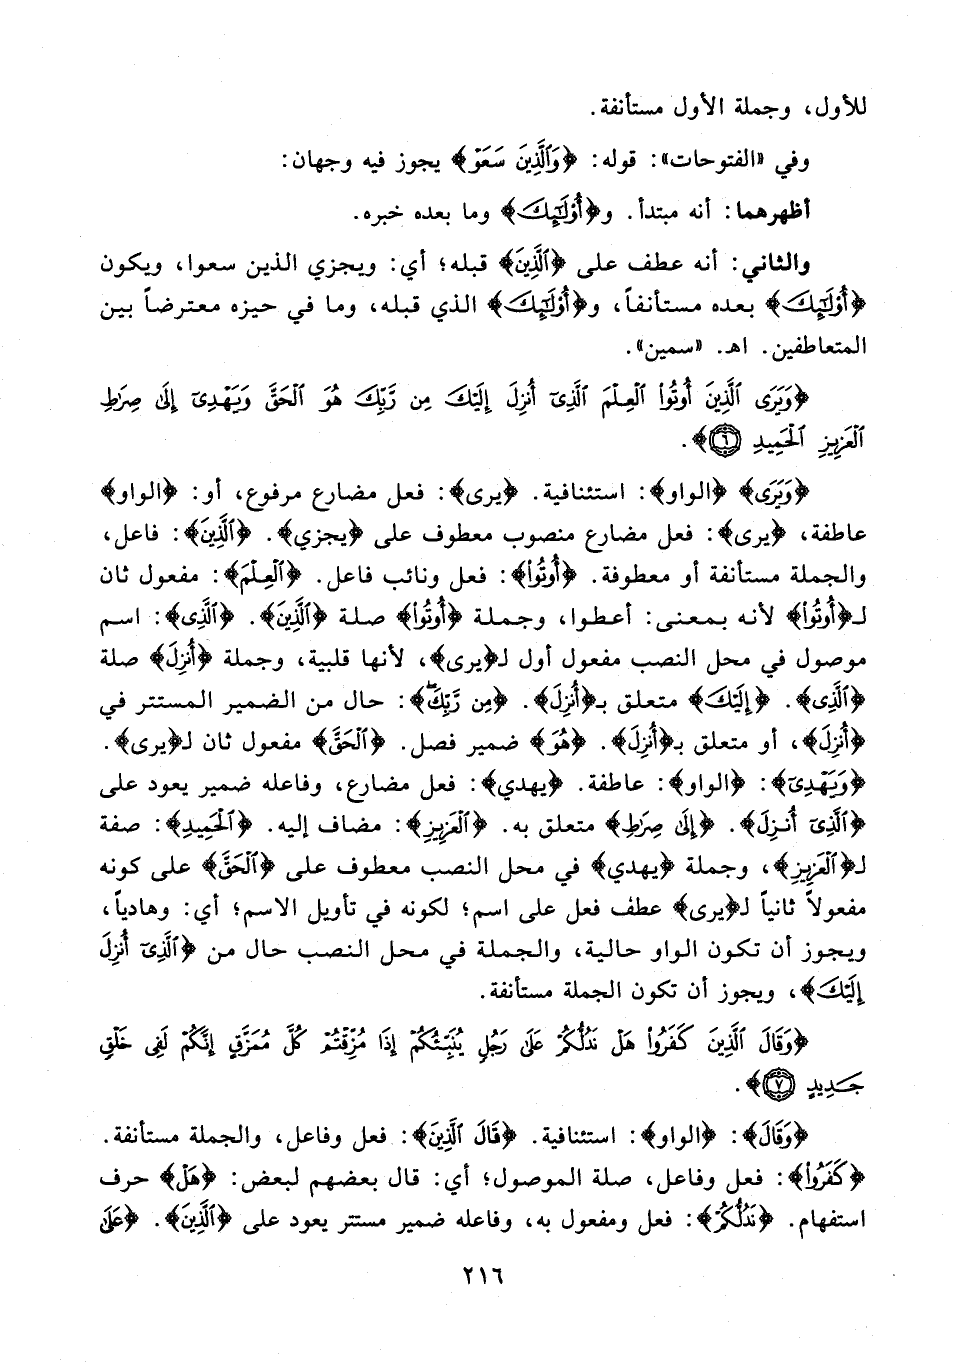 للأول، وجملة الأول مستأنفة.
وفي «الفتوحات»: قوله: ﴿وَٱلَّذِينَ سَعَوْ﴾ يجوز فيه وجهان:
أظهرهما: أنه مبتدأ. و﴿أُوْلَٰٓئِكَ﴾ وما بعده خبره.
والثاني: أنه عطف على ﴿ٱلَّذِينَ﴾ قبله؛ أي: ويجزي الذين سعوا، ويكون
﴿أُوْلَٰٓئِكَ﴾ بعده مستأنفاً، و﴿أُوْلَٰٓئِكَ﴾ الذي قبله، وما في حيزه معترضاً بين
المتعاطفين. اهـ. «سمين».
﴿وَيَرَى ٱلَّذِينَ أُوتُوا۟ ٱلْعِلْمَ ٱلَّذِىٓ أُنزِلَ إِلَيْكَ مِن رَّبِّكَ هُوَ ٱلْحَقَّ وَيَهْدِىٓ إِلَىٰ صِرَٰطِ
ٱلْعَزِيزِ ٱلْحَمِيدِ ٦﴾.
﴿وَيَرَى﴾ ﴿الواو﴾: استئنافية. ﴿يرى﴾: فعل مضارع مرفوع، أو: ﴿الواو﴾
عاطفة، ﴿يرى﴾: فعل مضارع منصوب معطوف على ﴿يجزي﴾. ﴿ٱلَّذِينَ﴾: فاعل،
والجملة مستأنفة أو معطوفة. ﴿أُوتُوا۟﴾: فعل ونائب فاعل. ﴿ٱلْعِلْمَ﴾: مفعول ثان
لـ﴿أُوتُوا۟﴾ لأنه بمعنى: أعطوا، وجملة ﴿أُوتُوا۟﴾ صلة ﴿ٱلَّذِينَ﴾. ﴿ٱلَّذِى﴾: اسم
موصول في محل النصب مفعول أول لـ﴿يرى﴾، لأنها قلبية، وجملة ﴿أُنزِلَ﴾ صلة
﴿ٱلَّذِى﴾. ﴿إِلَيْكَ﴾ متعلق بـ﴿أُنزِلَ﴾. ﴿مِن رَّبِّكَ﴾: حال من الضمير المستتر في
﴿أُنزِلَ﴾، أو متعلق بـ﴿أُنزِلَ﴾. ﴿هُوَ﴾ ضمير فصل. ﴿ٱلْحَقَّ﴾ مفعول ثان لـ﴿يرى﴾.
﴿وَيَهْدِىٓ﴾: ﴿الواو﴾: عاطفة. ﴿يهدي﴾: فعل مضارع، وفاعله ضمير يعود على
﴿ٱلَّذِىٓ أُنزِلَ﴾. ﴿إِلَىٰ صِرَٰطِ﴾ متعلق به. ﴿ٱلْعَزِيزِ﴾: مضاف إليه. ﴿ٱلْحَمِيدِ﴾: صفة
لـ﴿ٱلْعَزِيزِ﴾، وجملة ﴿يهدي﴾ في محل النصب معطوف على ﴿ٱلْحَقَّ﴾ على كونه
مفعولاً ثانياً لـ﴿يرى﴾ عطف فعل على اسم؛ لكونه في تأويل الاسم؛ أي: وهادياً،
ويجوز أن تكون الواو حالية، والجملة في محل النصب حال من ﴿ٱلَّذِىٓ أُنزِلَ
إِلَيْكَ﴾، ويجوز أن تكون الجملة مستأنفة.
﴿وَقَالَ ٱلَّذِينَ كَفَرُوا۟ هَلْ نَدُلُّكُمْ عَلَىٰ رَجُلٍ يُنَبِّئُكُمْ إِذَا مُزِّقْتُمْ كُلَّ مُمَزَّقٍ إِنَّكُمْ لَفِى خَلْقٍ
جَدِيدٍ ٧﴾.
﴿وَقَالَ﴾: ﴿الواو﴾: استئنافية. ﴿قَالَ ٱلَّذِينَ﴾: فعل وفاعل، والجملة مستأنفة.
﴿كَفَرُوا۟﴾: فعل وفاعل، صلة الموصول؛ أي: قال بعضهم لبعض: ﴿هَلْ﴾ حرف
استفهام. ﴿نَدُلُّكُمْ﴾: فعل ومفعول به، وفاعله ضمير مستتر يعود على ﴿ٱلَّذِينَ﴾. ﴿عَلَىٰ
٢١٦